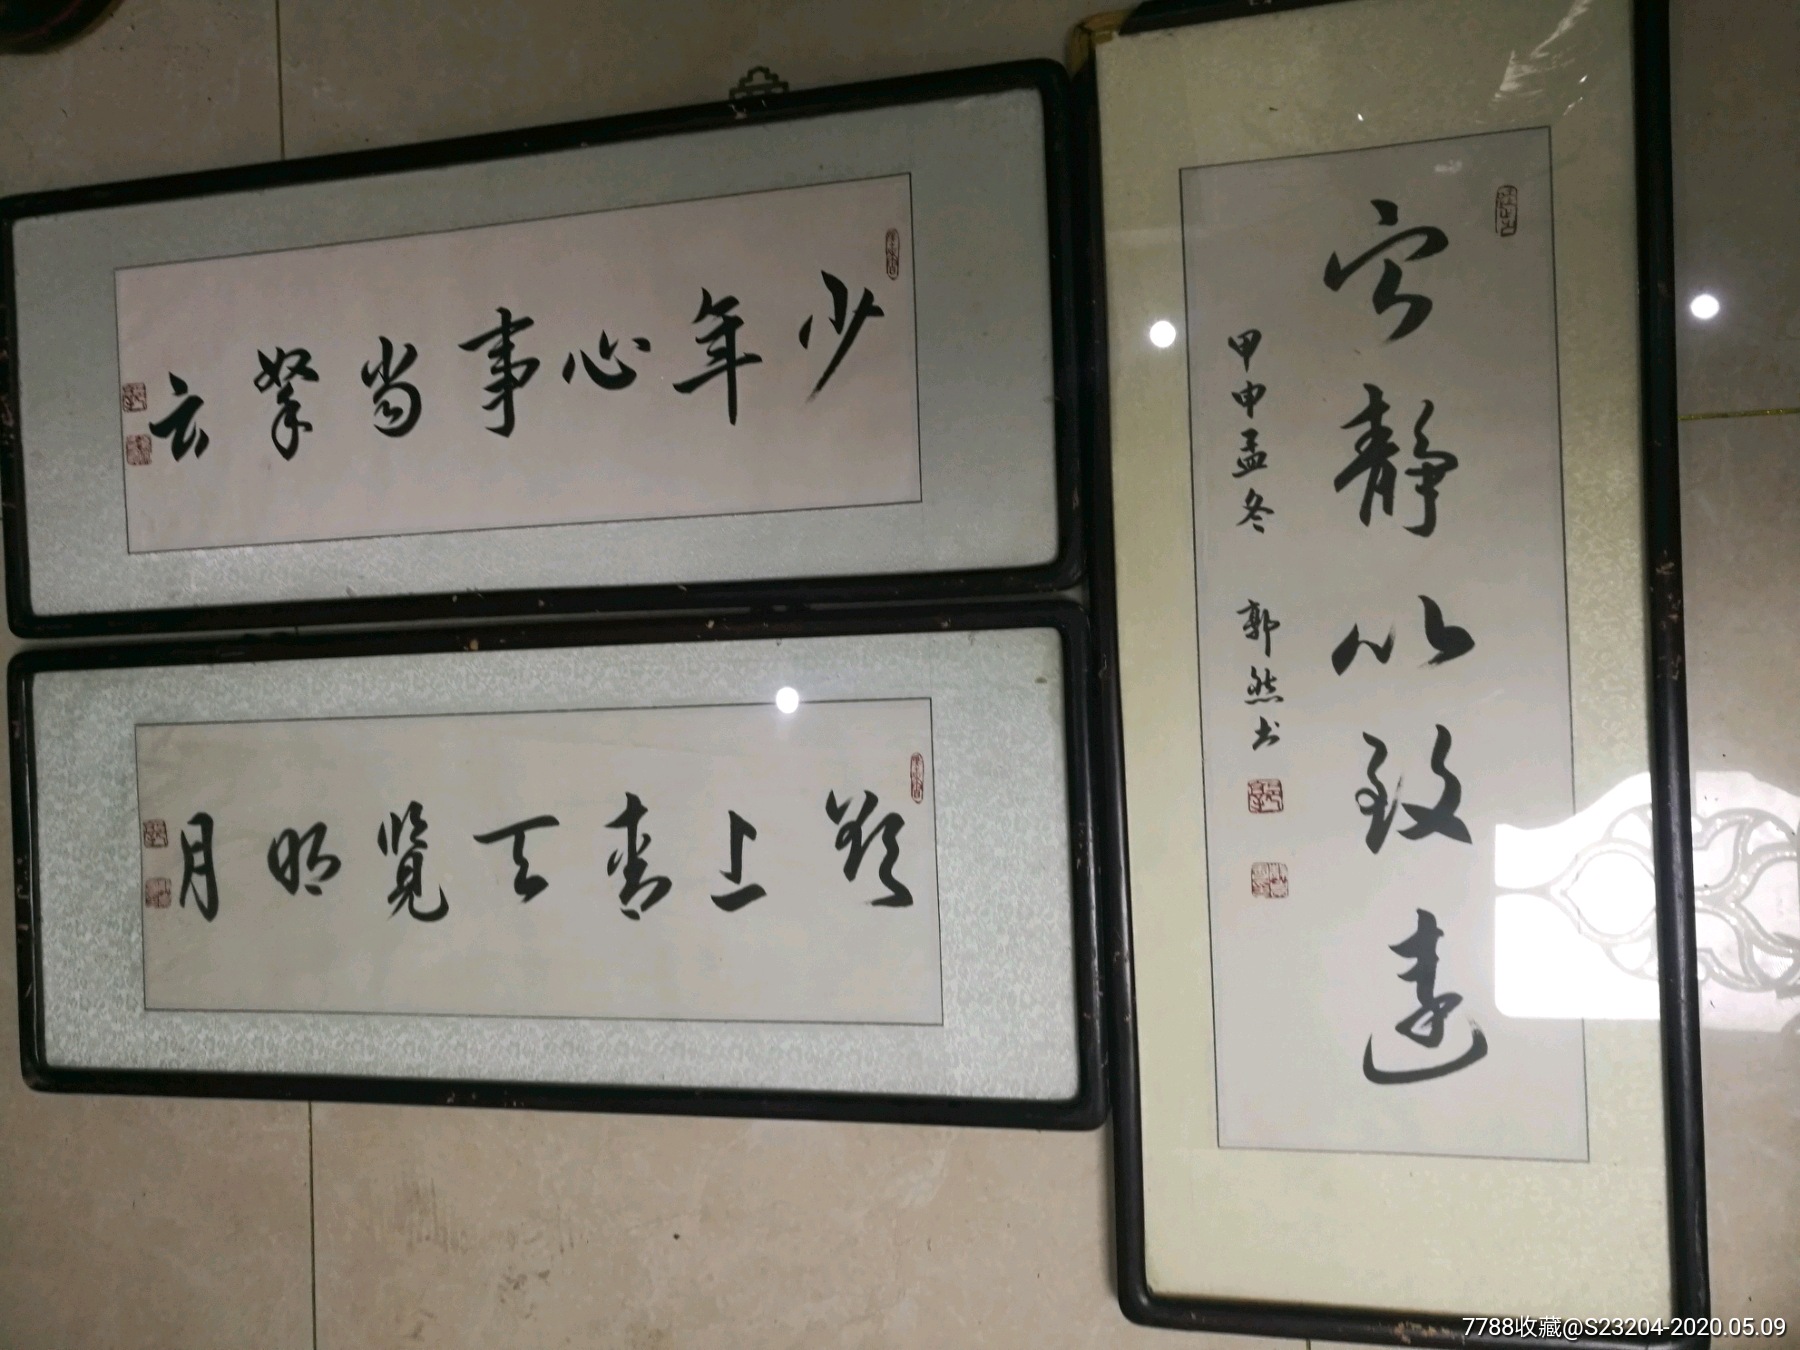 少年心事当拏云
欲上青天览明月
宁静以致远
甲申孟冬 郭然书
7788收藏@S23204-2020.05.09